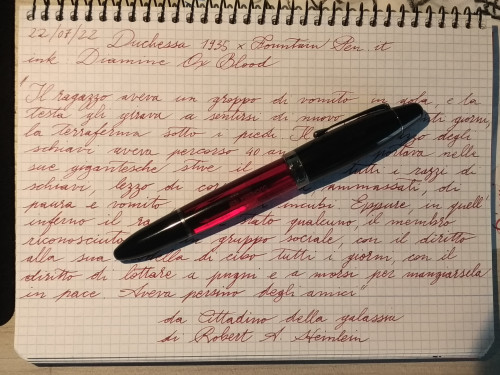 22/07/22 Duchessa 1935 x Fountain Pen it
ink Diamine Ox Blood
"Il ragazzo aveva un groppo di vomito in gola, e la
testa gli girava a sentirsi di nuovo giorni,
la terraferma sotto i piedi. Il degli
schiavi aveva percorso 40 an nelle
sue gigantesche stive il tutti i razzi di
schiavi, lezzo di ammassati, di
paura e vomito incubi. Eppure, in quell'
inferno il stato qualcuno, il membro
riconosciuto gruppo sociale, con il diritto
alla sua di cibo tutti i giorni, con il
diritto di lottare a pugni e a morsi per mangiarsela
in pace. Aveva persino degli amici"
da Cittadino della galassia
di Robert A. Heinlein